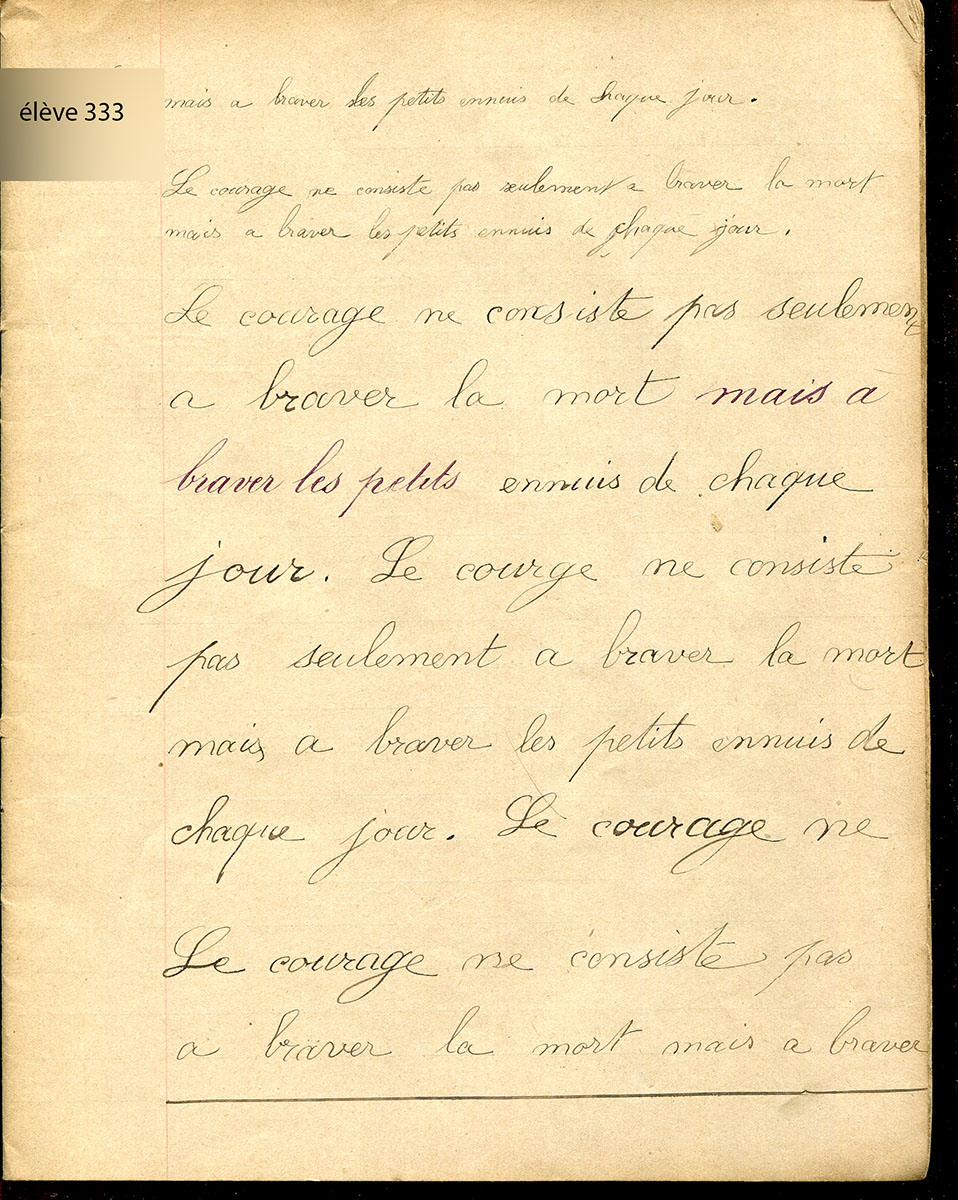 élève 333
mais a braver les petits ennuis de chaque jour.
Le courage ne consiste pas seulement a braver la mort
mais a braver les petits ennuis de chaque jour.
Le courage ne consiste pas seulement
a braver la mort mais à
braver les petits ennuis de chaque
jour. Le courge ne consiste
pas seulement a braver la mort
mais a braver les petits ennuis de
chaque jour. Le courage ne
Le courage ne consiste pas
a braver la mort mais a braver